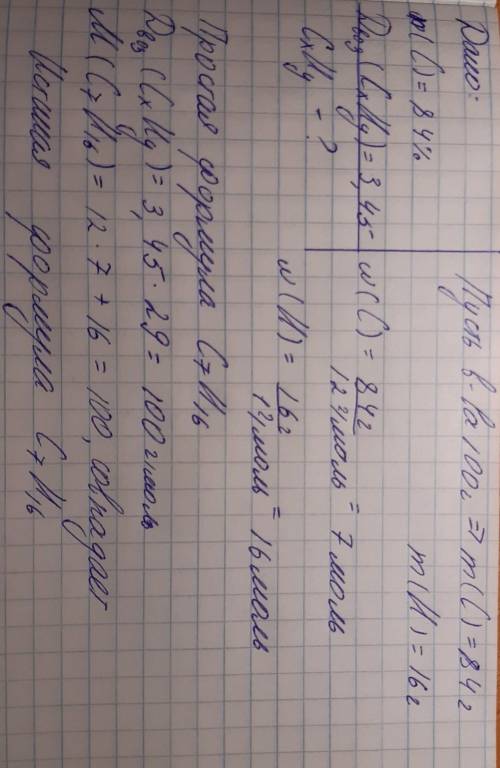 Дано:
m(C) = 84%
Dвозд(CxHy) = 3,45
CxHy - ?
Пусть в-ва 100г ⇒ m(C) = 84г
m(H) = 16г
n(C) = 84г / 12г/моль = 7 моль
n(H) = 16г / 1г/моль = 16 моль
Простая формула C7H16
Dвозд(CxHy) = 3,45 · 29 = 100г/моль
M(C7H16) = 12 · 7 + 16 = 100, совпадает
формула C7H16